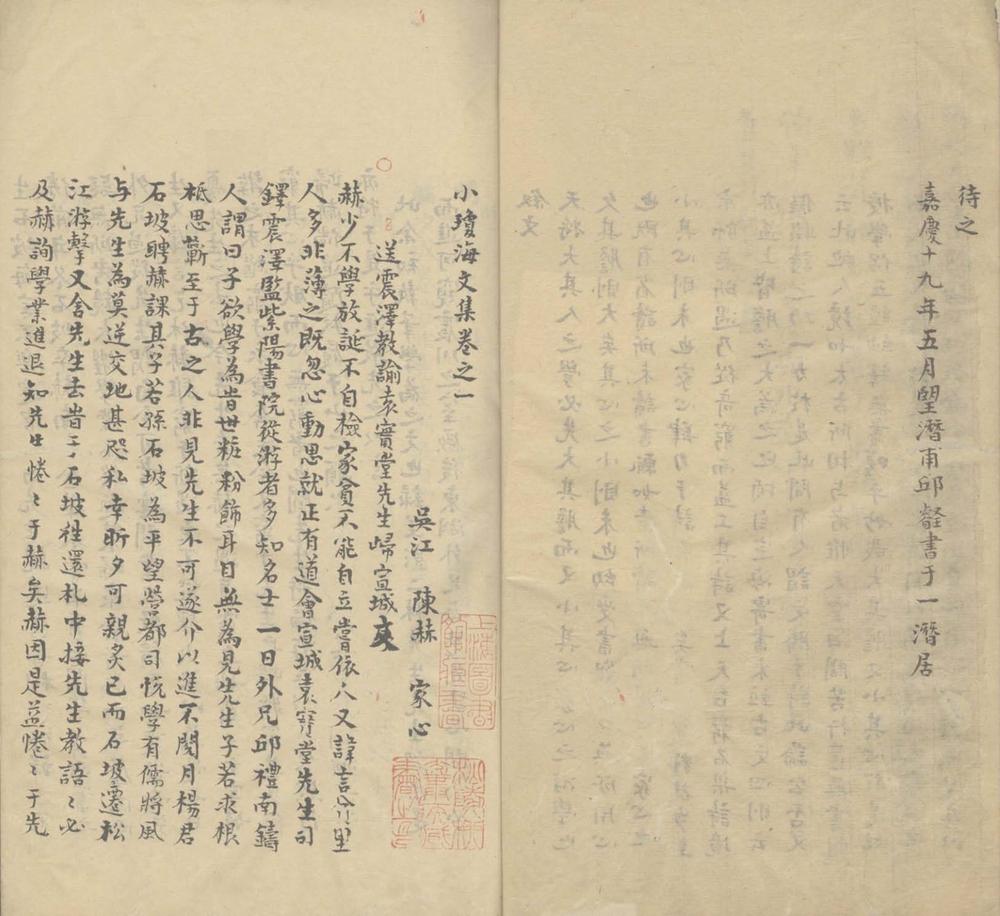 待之
嘉慶十九年五月望潛甫邱璒書于一潛居
小瓊海文集卷之一
吳江 陳赫 家心
送震澤教諭袁實堂先生歸宣城
赫少不學放誕不自檢家貧不能自立嘗依人又諱言命里
人多非薄之既忽心動思就正有道會宣城袁實堂先生司
鐸震澤監紫陽書院從游者多知名士一日外兄邱禮南鑄
人謂曰子欲學為昔世粧粉飾耳目無為見先生子若求根
柢思蘄至于古之人非見先生不可遂介以進不閱月楊君
石坡聘赫課其子若孫石坡為平望營都司悅學有儒將風
与先生為莫逆交地甚咫私幸昕夕可親炙已而石坡遷松
江游擊又舍先生去昔于石坡往還札中接先生教語〻必
及赫詢學業進退知先生惓〻于赫矣赫因是益惓〻于先